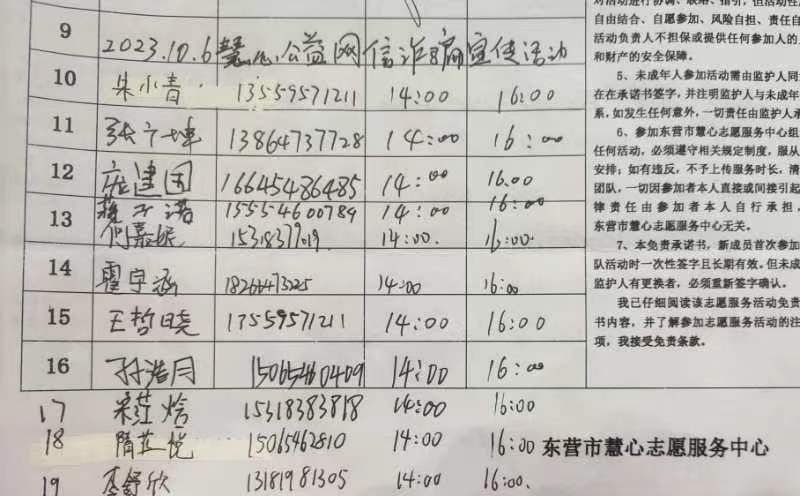 9 2023.10.6慧心公益网信诈骗宣传活动
10 朱小青 13559571211 14:00 16:00
11 张广坤 13864737728 14:00 16:00
12 庞建国 16645486485 14:00 16:00
13 15554600789 14:00 16:00
15318377019 14:00 16:00
14 霍宇涵 18266473225 14:00 16:00
15 王哲晓 13559571211 14:00 16:00
16 孙浩月 15065460409 14:00 16:00
17 15318383818 14:00 16:00
18 隋芷悦 15065462810 14:00 16:00
19 李舒欣 13181981305 14:00 16:00.
自由结合、自愿参加、风险自担、责任自
活动负责人不担保或提供任何参加人的人
和财产的安全保障。
5、未成年人参加活动需由监护人同
在在承诺书签字，并注明监护人与未成年
系，如发生任何意外，一切责任由监护人承
6、参加东营市慧心志愿服务中心组
任何活动，必须遵守相关规定制度，服从
安排；如有违反，不予上传服务时长，清
团队，一切因参加者本人直接或间接引起
律责任由参加者本人自行承担，
东营市慧心志愿服务中心无关。
7、本免责承诺书，新成员首次参加
队活动时一次性签字且长期有效。但未成
监护人有更换者，必须重新签字确认。
我已仔细阅读该志愿服务活动免责
书内容，并了解参加志愿服务活动的注
项，我接受免责条款。
东营市慧心志愿服务中心